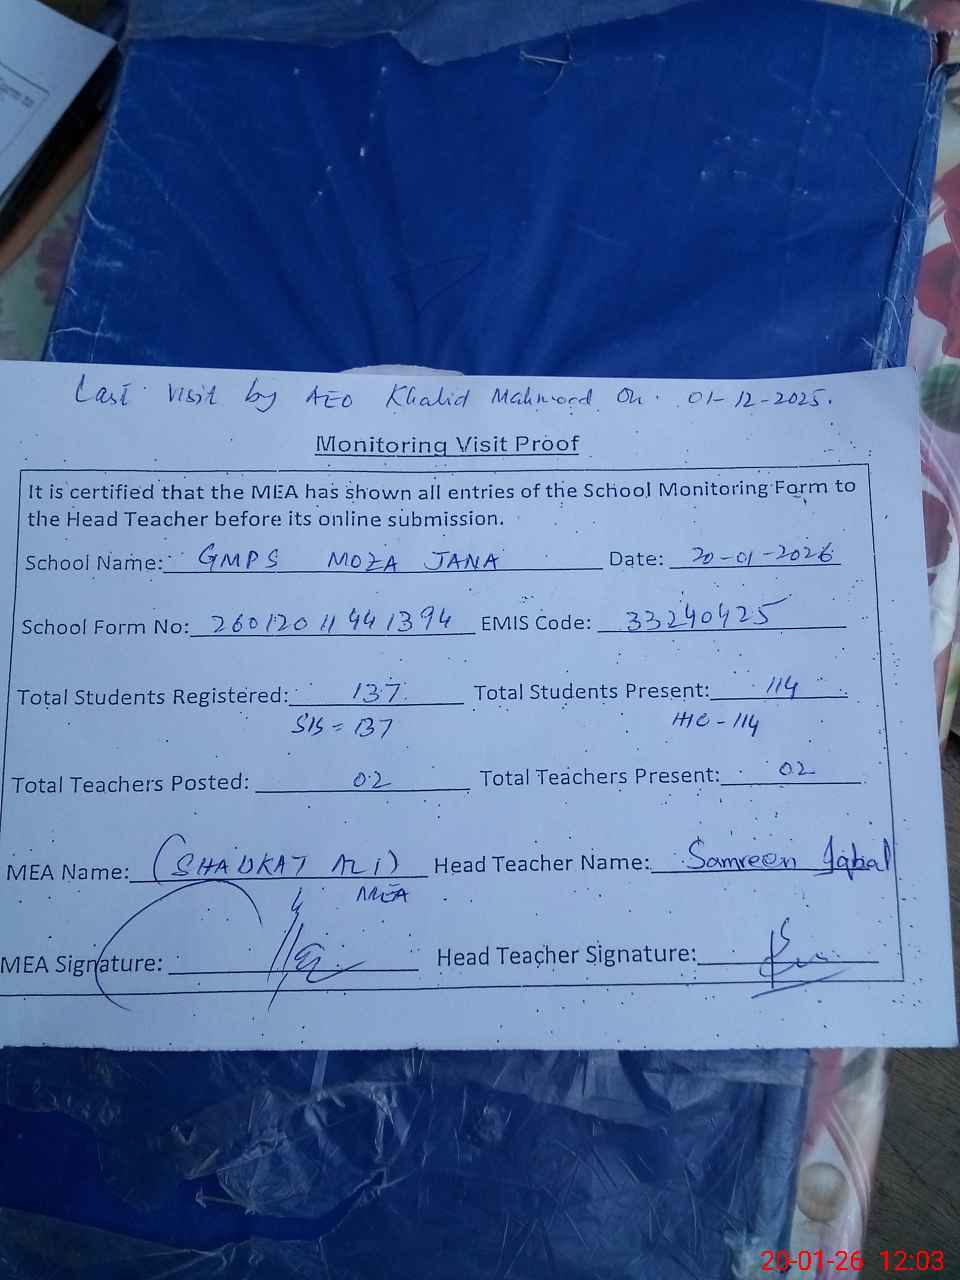 Last visit by AEO Khalid Mahmood On. 01-12-2025.
Monitoring Visit Proof
It is certified that the MEA has shown all entries of the School Monitoring Form to
the Head Teacher before its online submission.
School Name: GMPS MOZA JANA Date: 20-01-2026
School Form No: 260120119441394 EMIS Code: 33240425
Total Students Registered: 137 Total Students Present: 114
SIS = 137 HC - 114
Total Teachers Posted: 02 Total Teachers Present: 02
MEA Name: (SHAUKAT ALI) Head Teacher Name: Samreen Iqbal
MEA
MEA Signature: Head Teacher Signature:
20-01-26 12:03